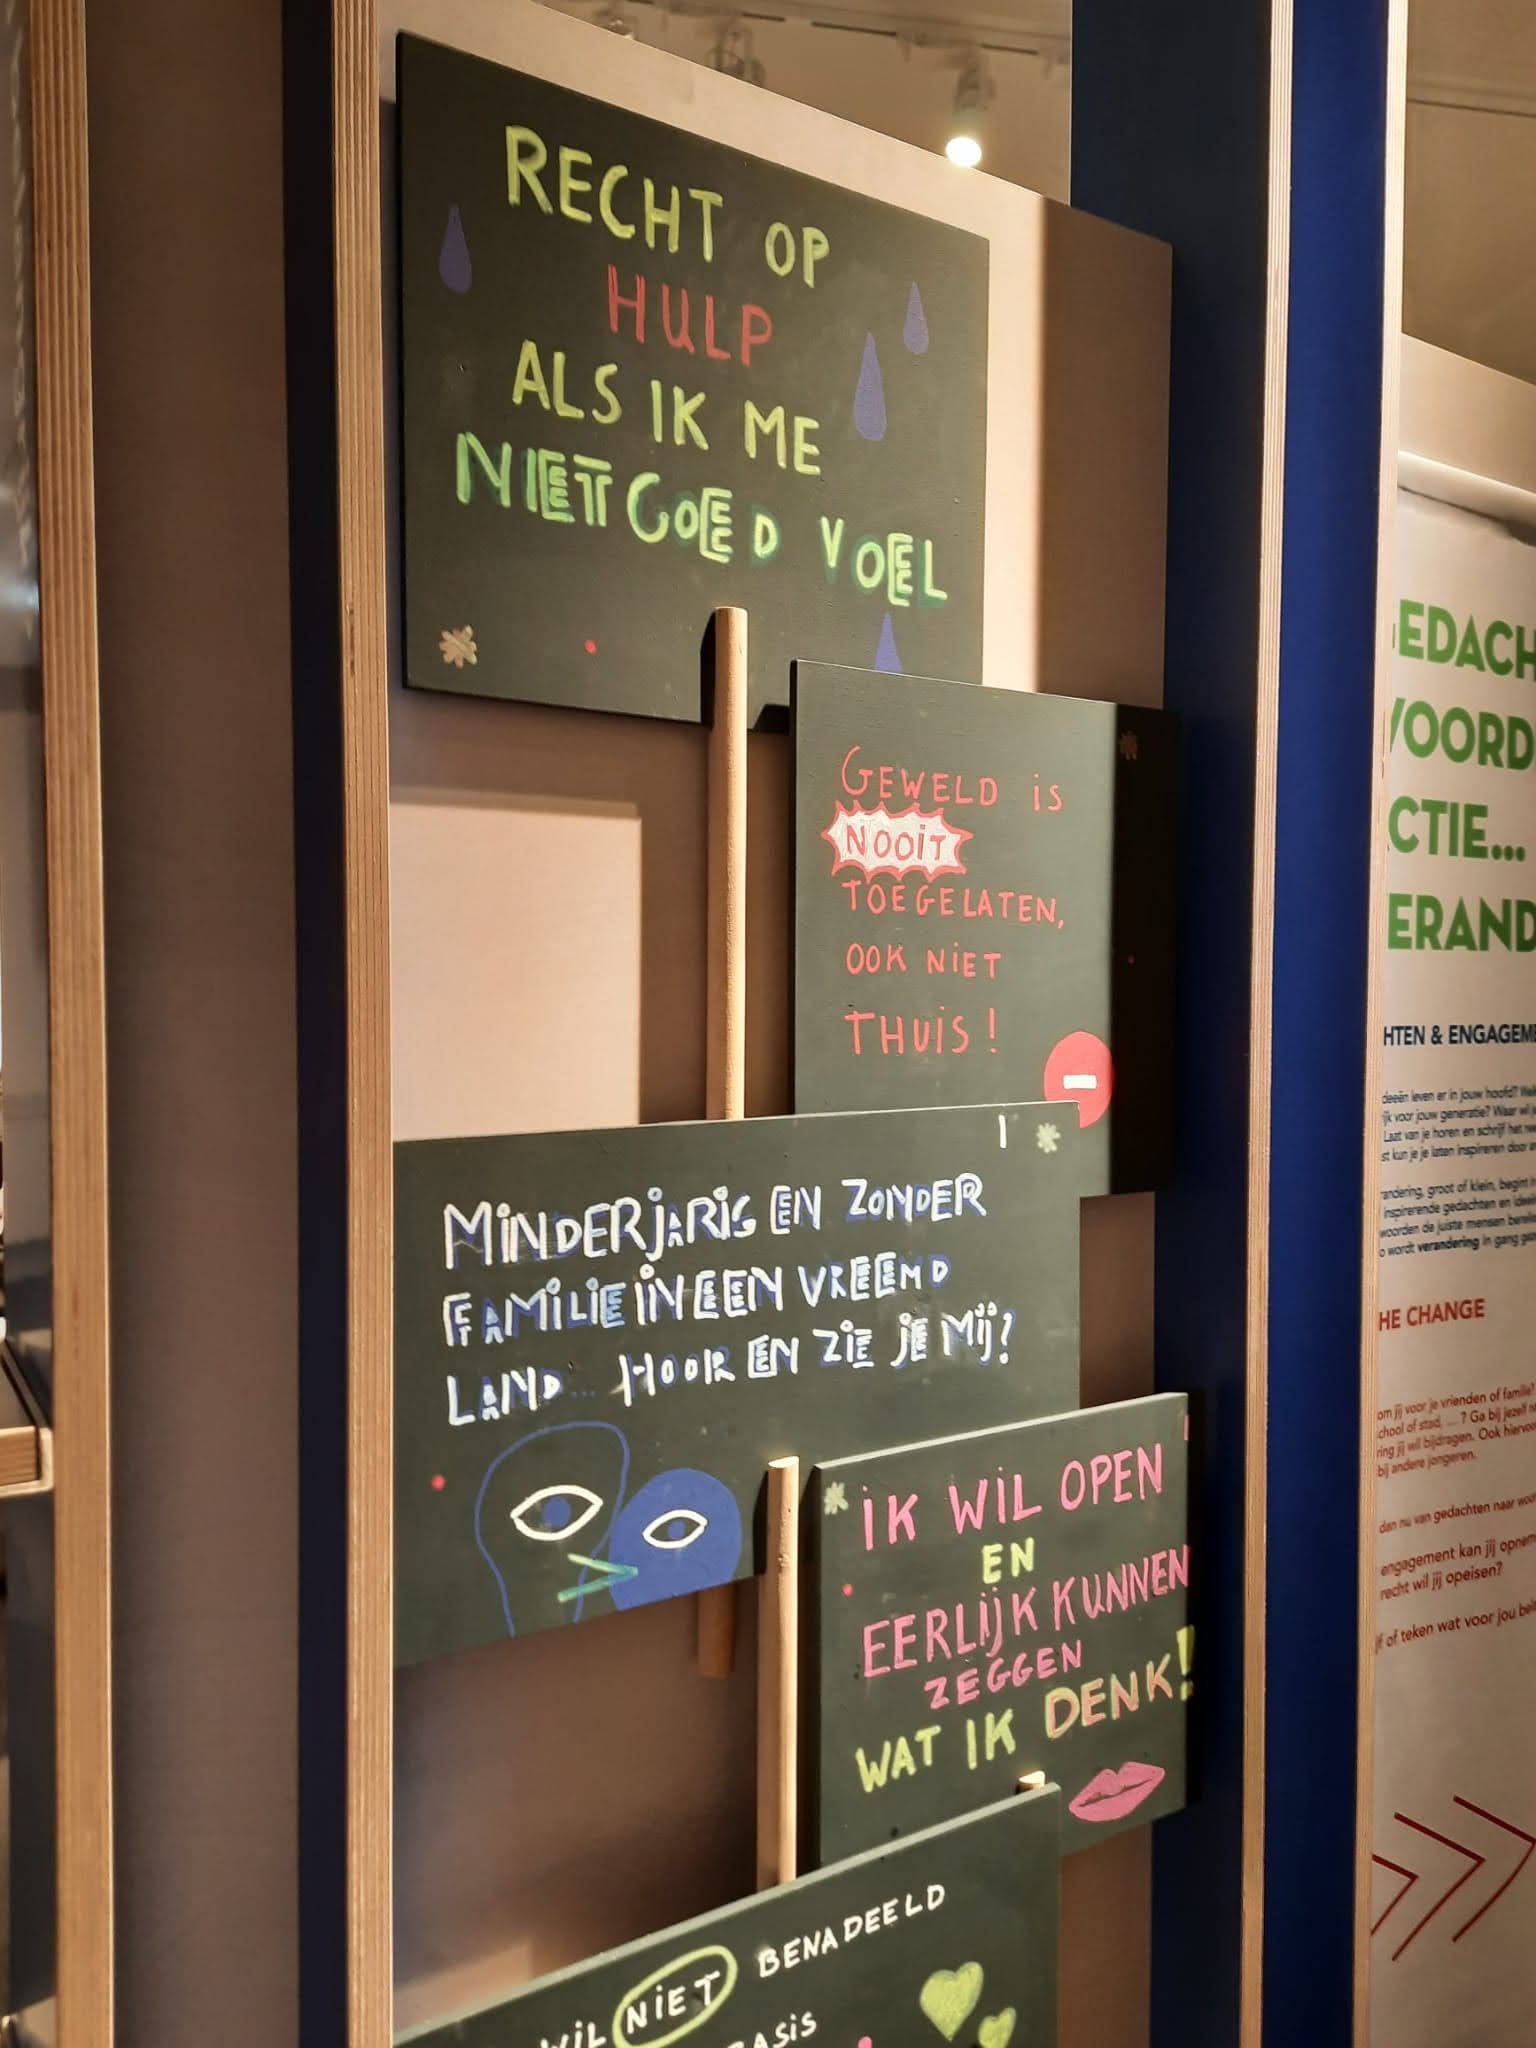 RECHT OP
HULP
ALS IK ME
NIET GOED VOEL
GEWELD is
NOOIT
TOEGELATEN,
OOK NIET
THUIS!
MINDERJARIG EN ZONDER
FAMILIE IN EEN VREEMD
LAND... HOOR EN ZIE JE MIJ?
IK WIL OPEN
EN
EERLIJK KUNNEN
ZEGGEN
WAT IK DENK!
NIET BENADEELD
HTEN & ENGAGEME
deeën leven er in jouw hoofd?
k voor jouw generatie? Waar
Laat van je horen en schrijf het
st kun je je laten inspireren door
andering, groot of klein, begint
inspirerende gedachten en
woorden de juiste mensen
o wordt verandering in gang
HE CHANGE
om jij voor je vrienden of familie?
school of stad, ...? Ga bij jezelf
ring jij wil bijdragen. Ook
bij andere jongeren.
dan nu van gedachten naar
engagement kan jij
recht wil jij opeisen?
of teken wat voor jou